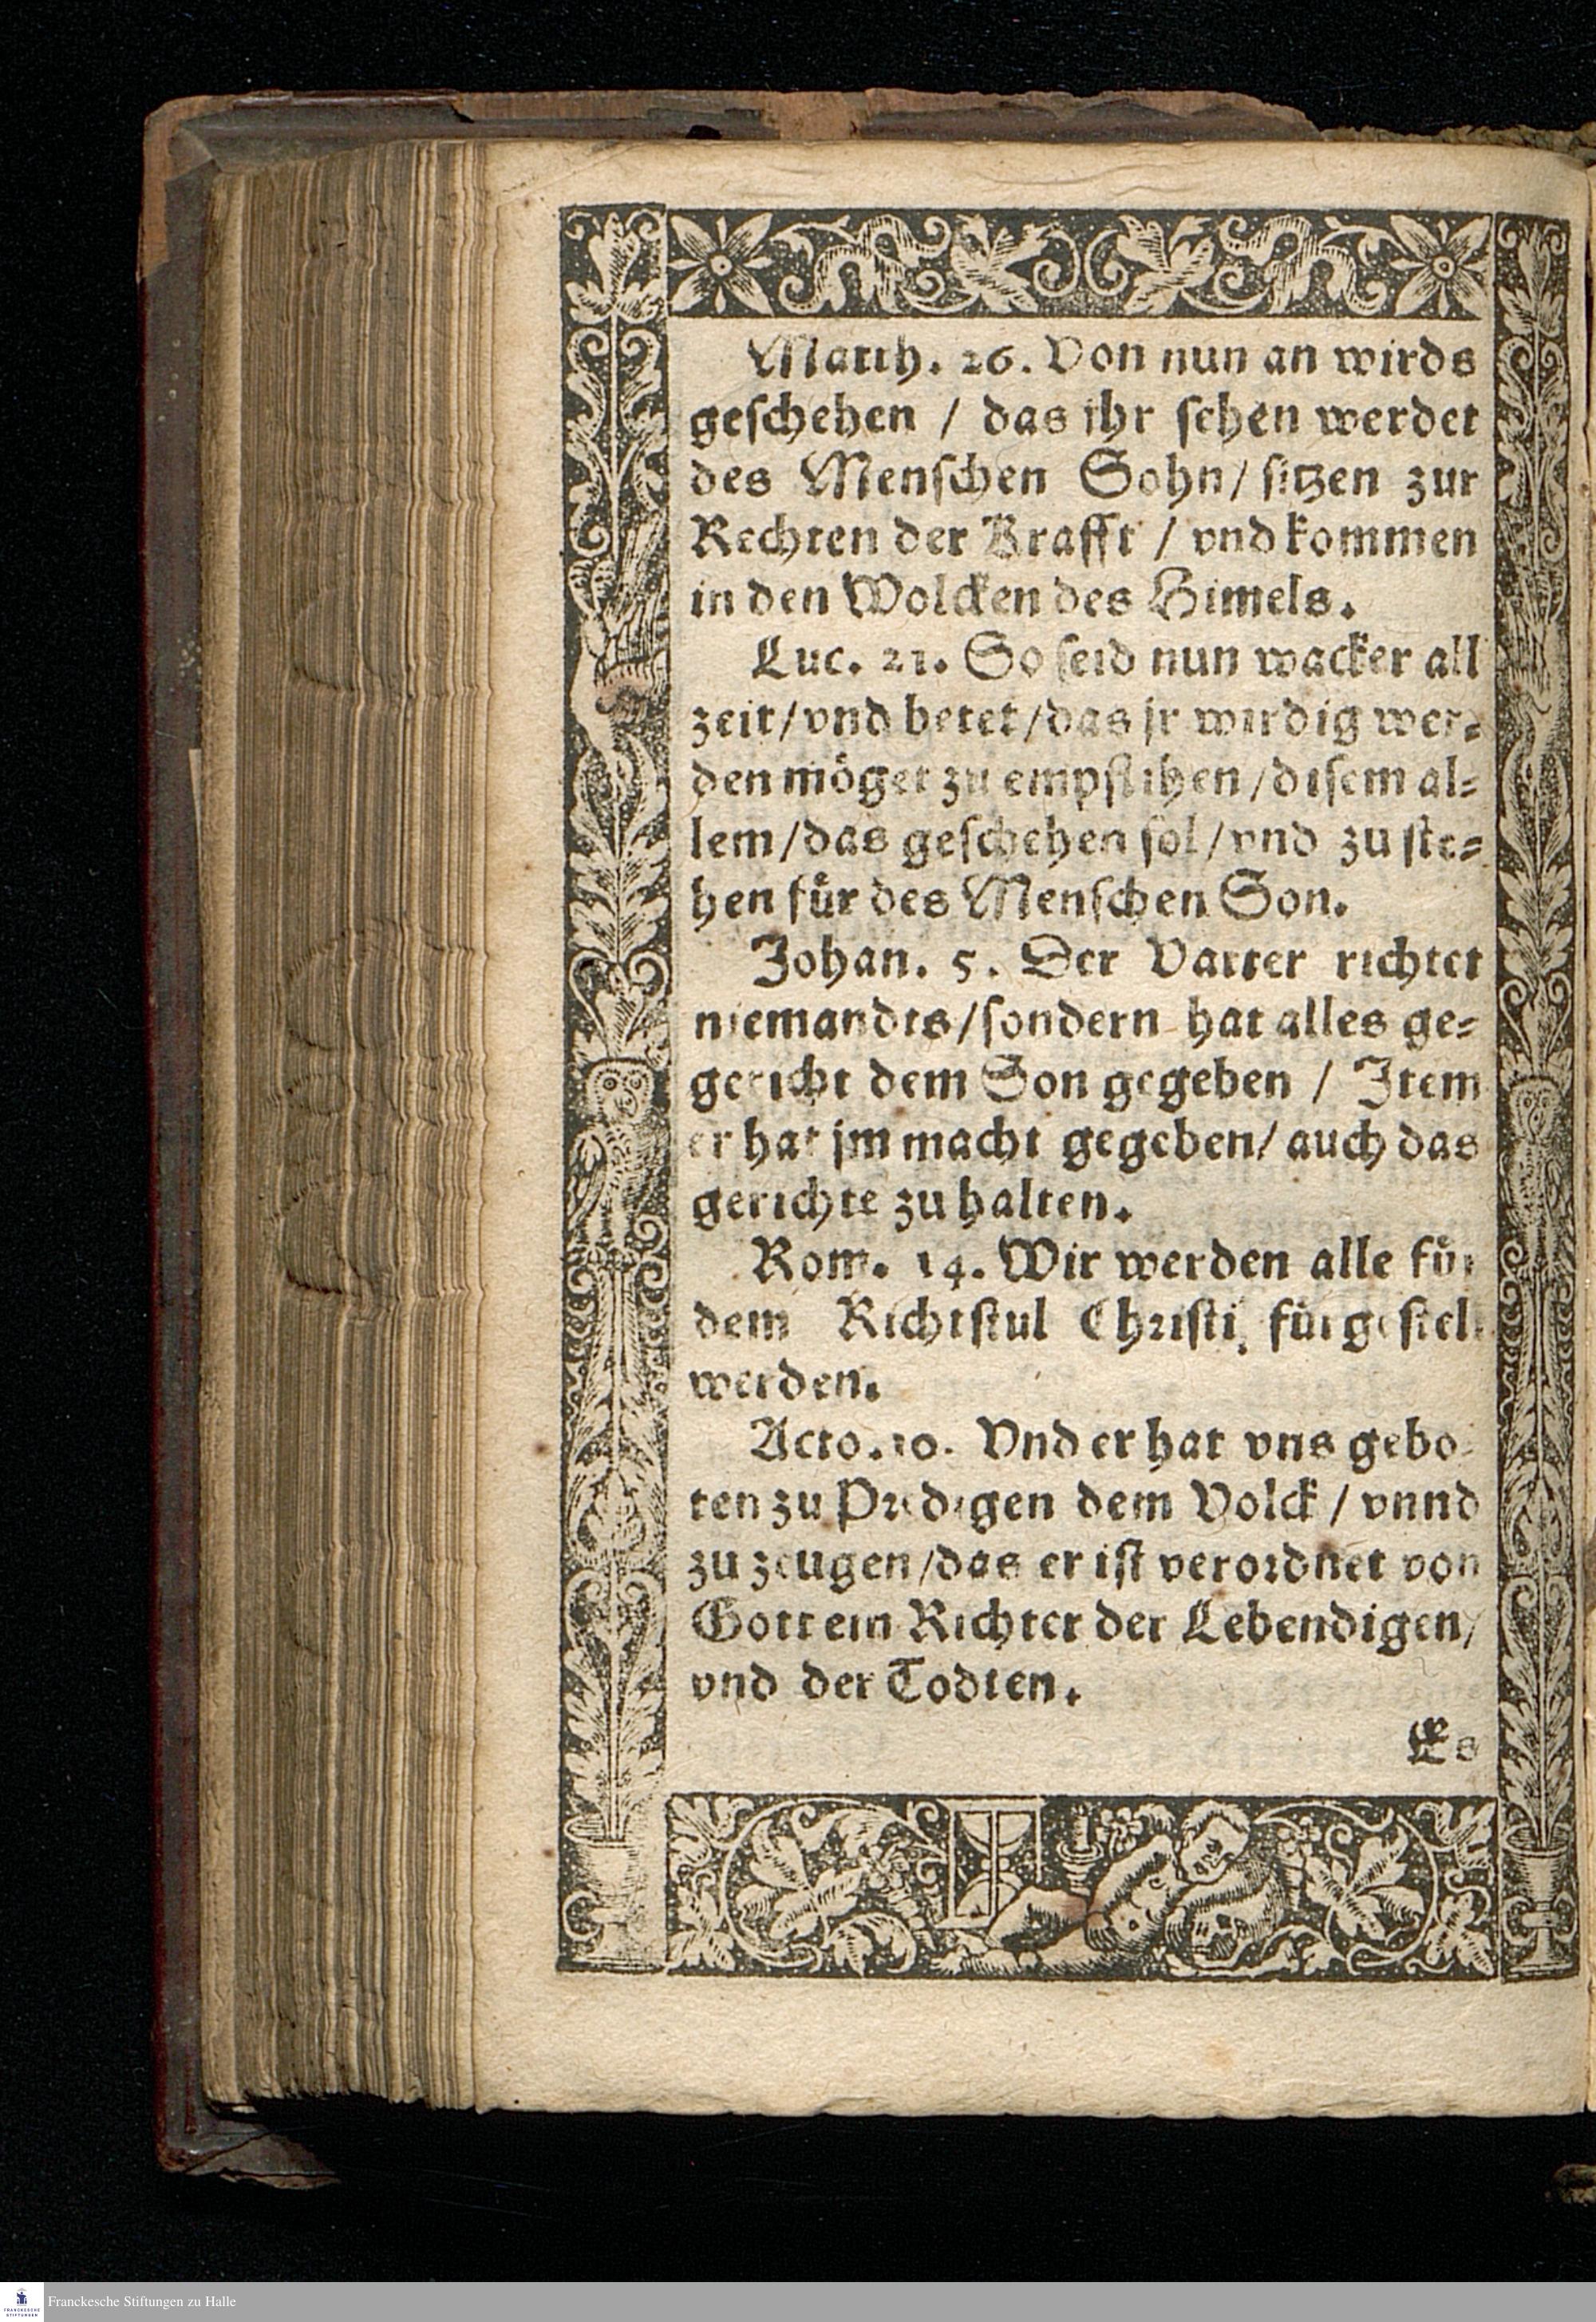 Matth. 26. Von nun an wirds
geſchehen / das ihr ſehen werdet
des Menſchen Sohn / ſitzen zur
Rechten der Krafft / vnd kommen
in den Wolcken des Himels.
Luc. 21. So ſeid nun wacker all
zeit / vnd betet / das jr wirdig wer⸗
den möget zu empflihen / diſem al⸗
lem / das geſchehen ſol / vnd zu ſte⸗
hen für des Menſchen Son.
Johan. 5. Der Vatter richtet
niemandts / ſondern hat alles ge⸗
gericht dem Son gegeben / Item
er hat jm macht gegeben / auch das
gerichte zu halten.
Rom. 14. Wir werden alle für
dem Richtſtul Chriſti fürgeſtel
werden.
Acto. 10. Vnd er hat vns gebo⸗
ten zu Predigen dem Volck / vnnd
zu zeugen / das er iſt verordnet von
Gott ein Richter der Lebendigen /
vnd der Todten.
Es
Franckesche Stiftungen zu Halle
FRANCKESCHE
STIFTUNGEN